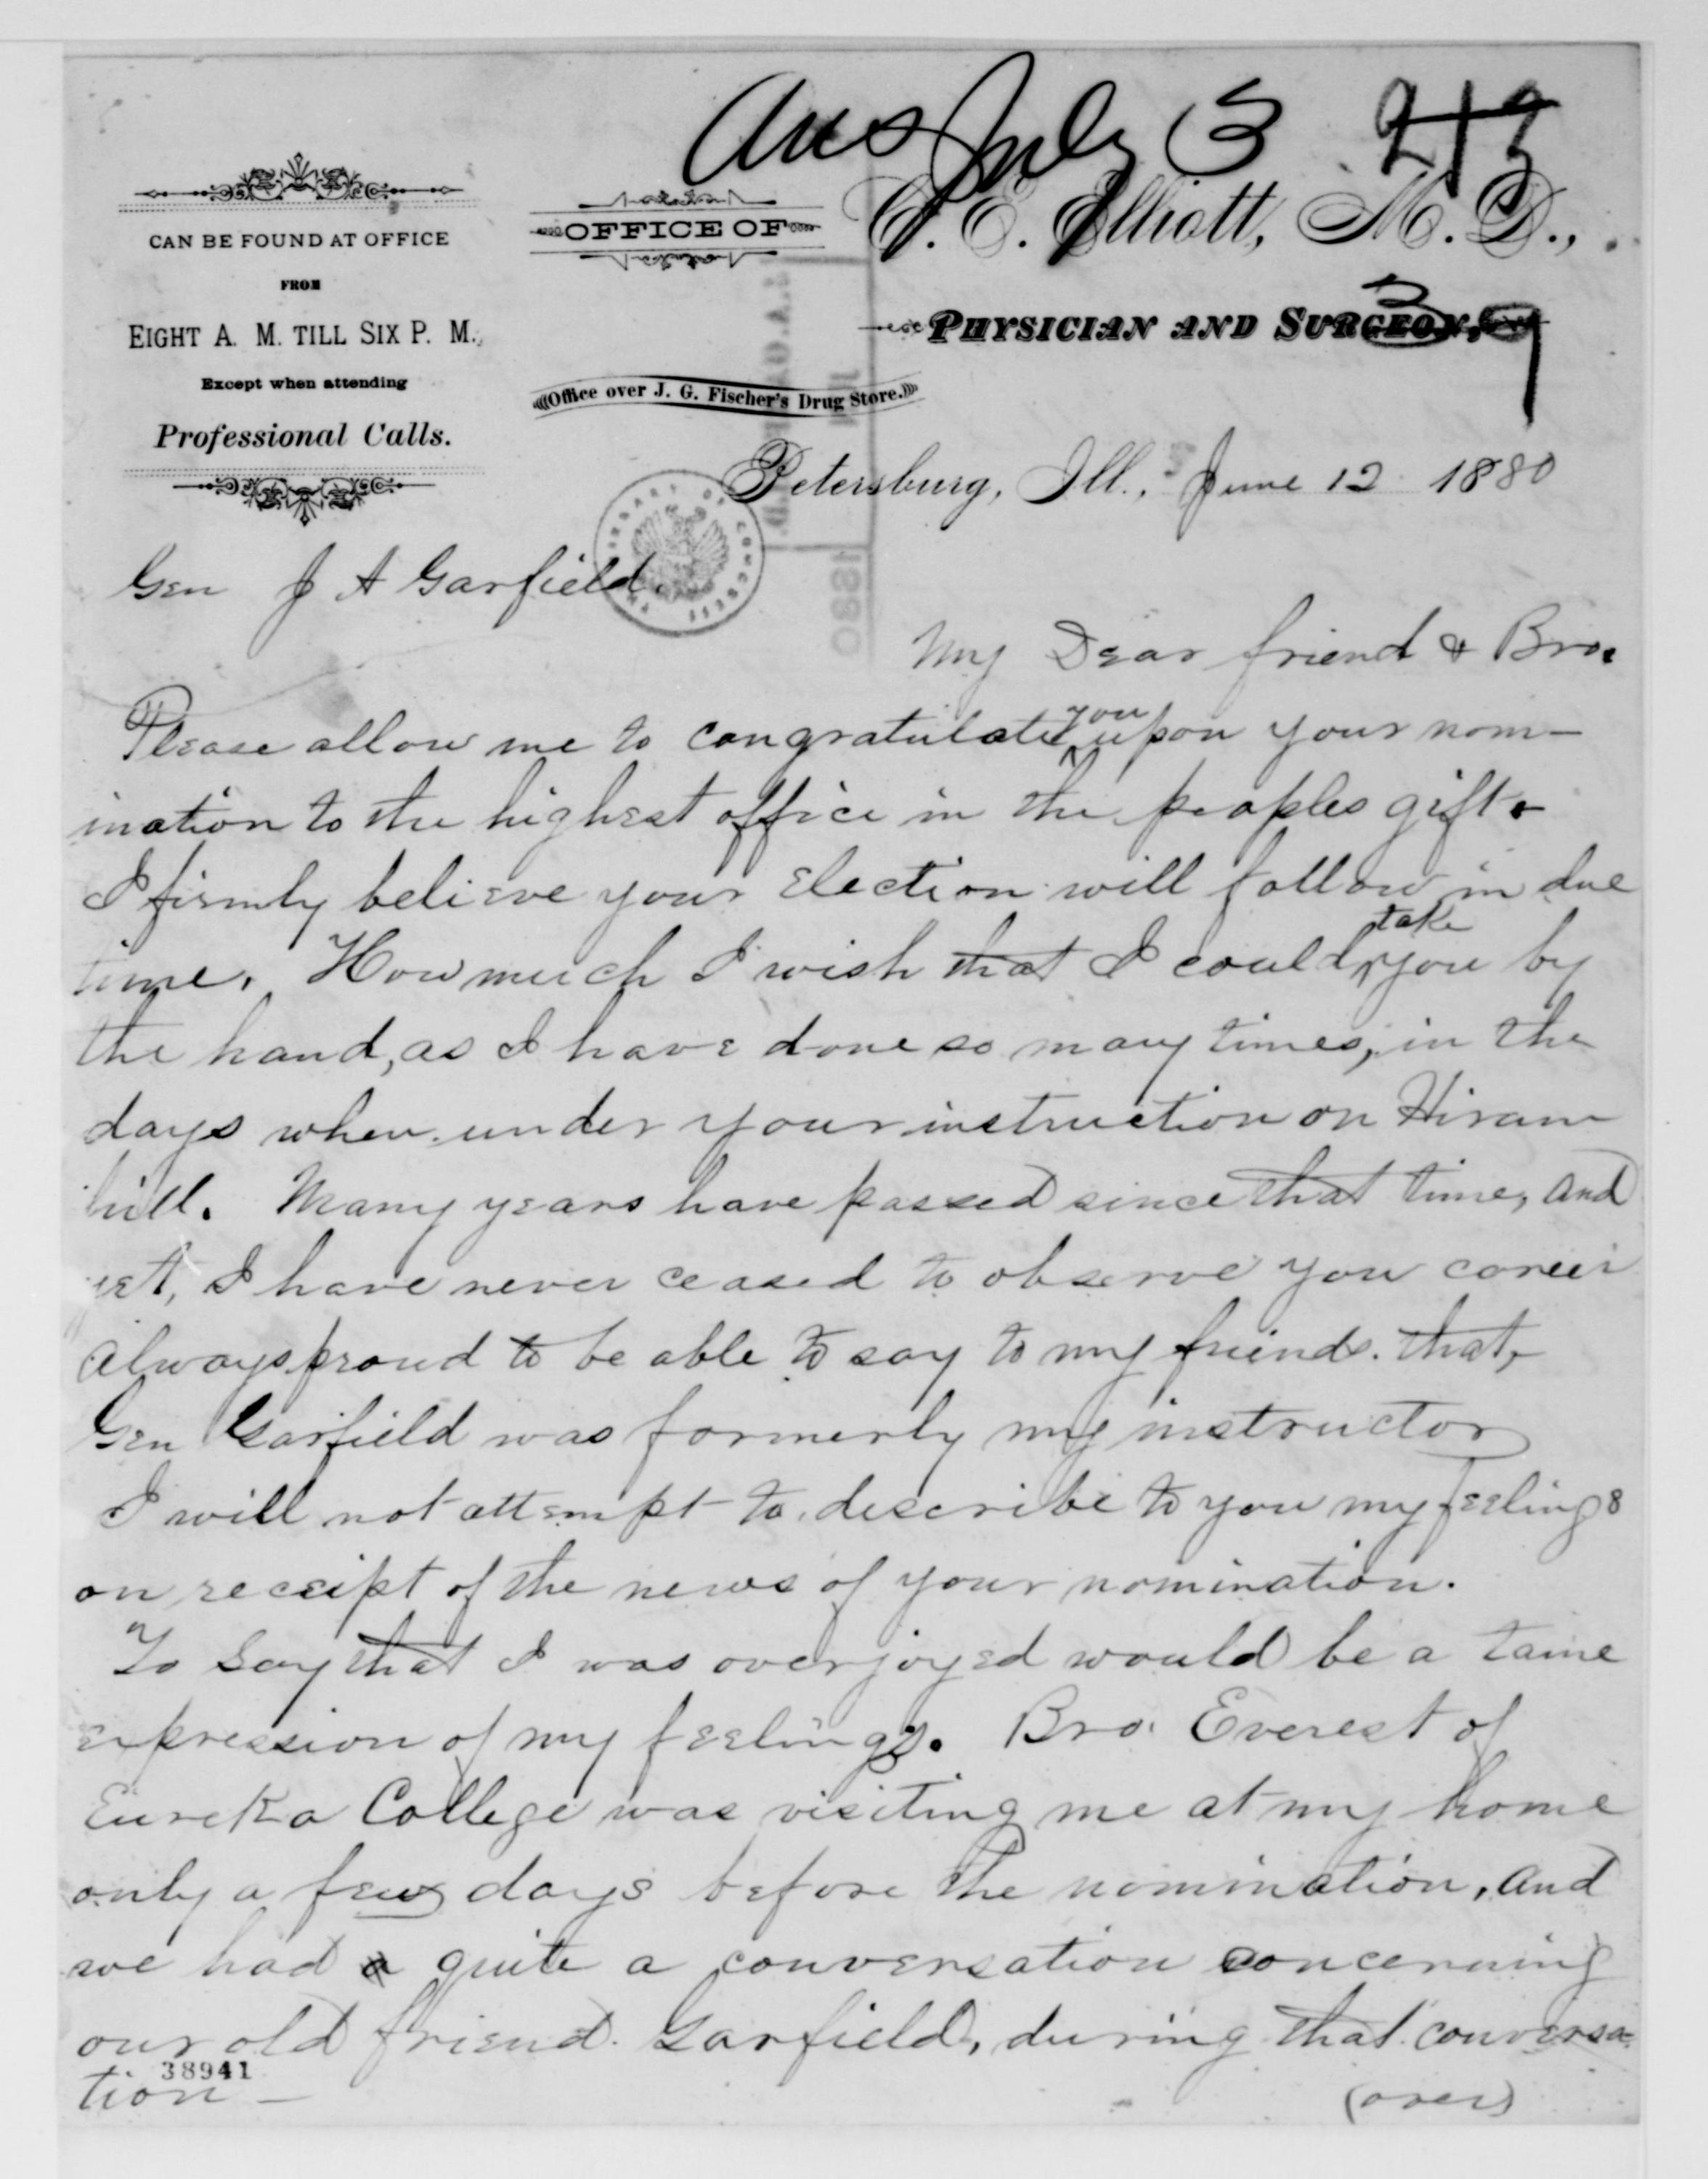 Ans July 3
CAN BE FOUND AT OFFICE
FROM
EIGHT A. M. TILL SIX P. M.,
Except when attending
Professional Calls.
OFFICE OF
E. Elliott, M. D.,
PHYSICIAN AND SURGEON,
Office over J. G. Fischer's Drug Store.
Petersburg, Ill., June 12 1880
LIBRARY OF CONGRESS
1880
Gen J A Garfield.
My Dear friend & Bro.
Please allow me to congratulate you upon your nom-
ination to the highest office in the peoples gift &
I firmly believe your election will follow in due
time. How much I wish that I could take you by
the hand, as I have done so many times, in the
days when under your instruction on Hiram
hill. Many years have passed since that time, and
yet, I have never ceased to observe you career
always proud to be able to say to my friends that,
Gen Garfield was formerly my instructor
I will not attempt to describe to you my feelings
on receipt of the news of your nomination.
To say that I was overjoyed would be a tame
expression of my feelings. Bro. Everest of
Eureka College was visiting me at my home
only a few days before the nomination, and
we had a quite a conversation concerning
our old friend Garfield, during that conversa-
tion —
38941
(over)